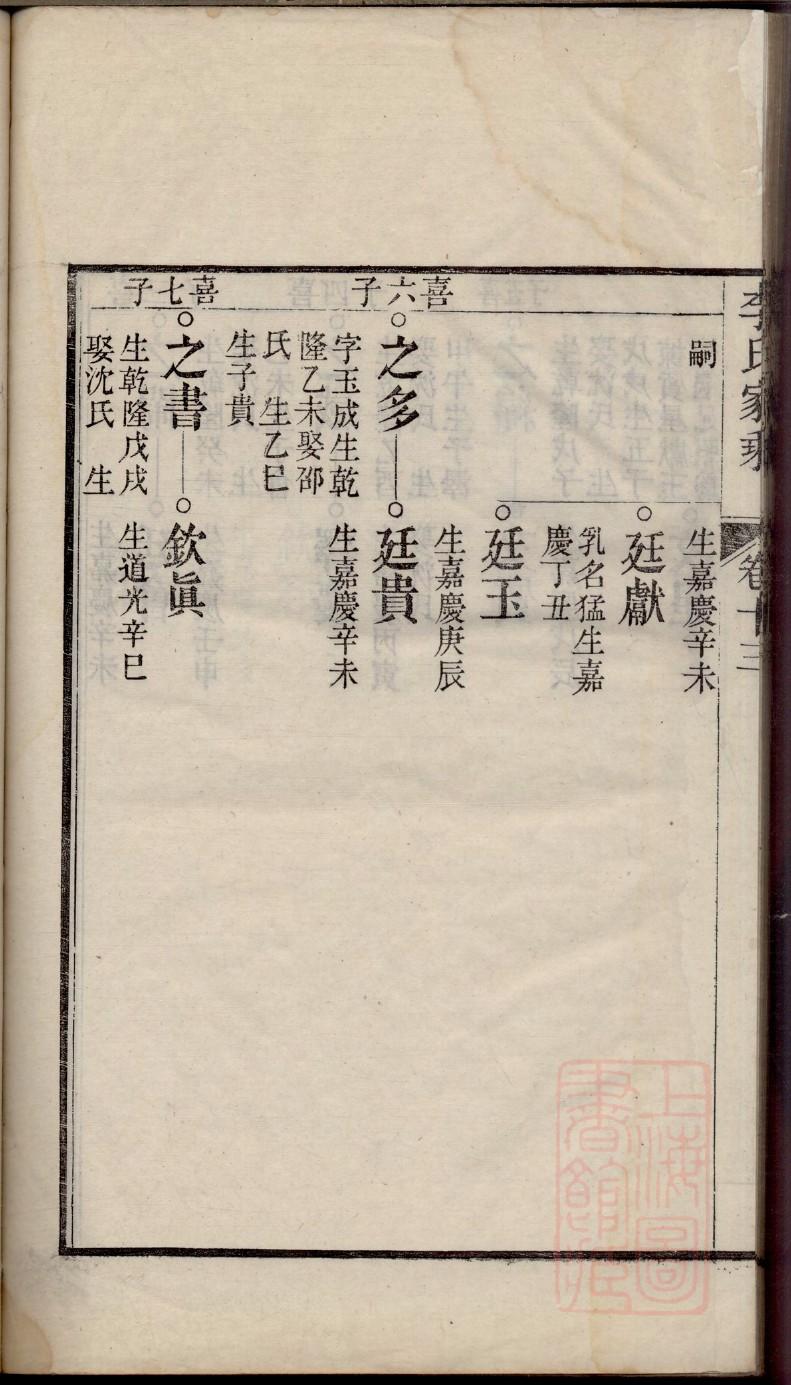 李氏家乘
卷十三
嗣
生嘉慶辛未
廷獻
乳名猛生嘉
慶丁丑
廷玉
生嘉慶庚辰
喜六子
之多
字玉成生乾
隆乙未娶邵
氏 生乙巳
生子貴
廷貴
生嘉慶辛未
喜七子
之書
生乾隆戊戌
娶沈氏 生
欽眞
生道光辛巳
上海圖
書館藏